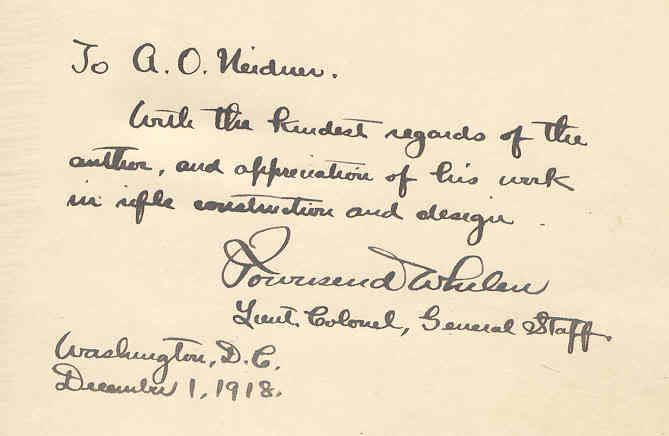 To A. O. Neidner.
With the kindest regards of the
author, and appreciation of his work
in rifle construction and design.
Townsend Whelen
Lieut. Colonel, General Staff.
Washington, D.C.
December 1, 1918.